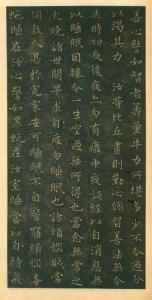 善心譬如智者籌量牛力所堪多少不令過分
以竭其力汝等比丘晝則勤心修習善法無令
失時初夜後夜亦勿有廢中夜誦經以自消息無
以睡眠因緣令一生空過無所得也當念無常之
火燒諸世間早求自度勿睡眠也諸煩惱賊常
伺殺人甚於寃家安可睡眠不自驚寤煩惱毒
蛇睡在汝心譬如黑蚖在汝室睡當以持戒